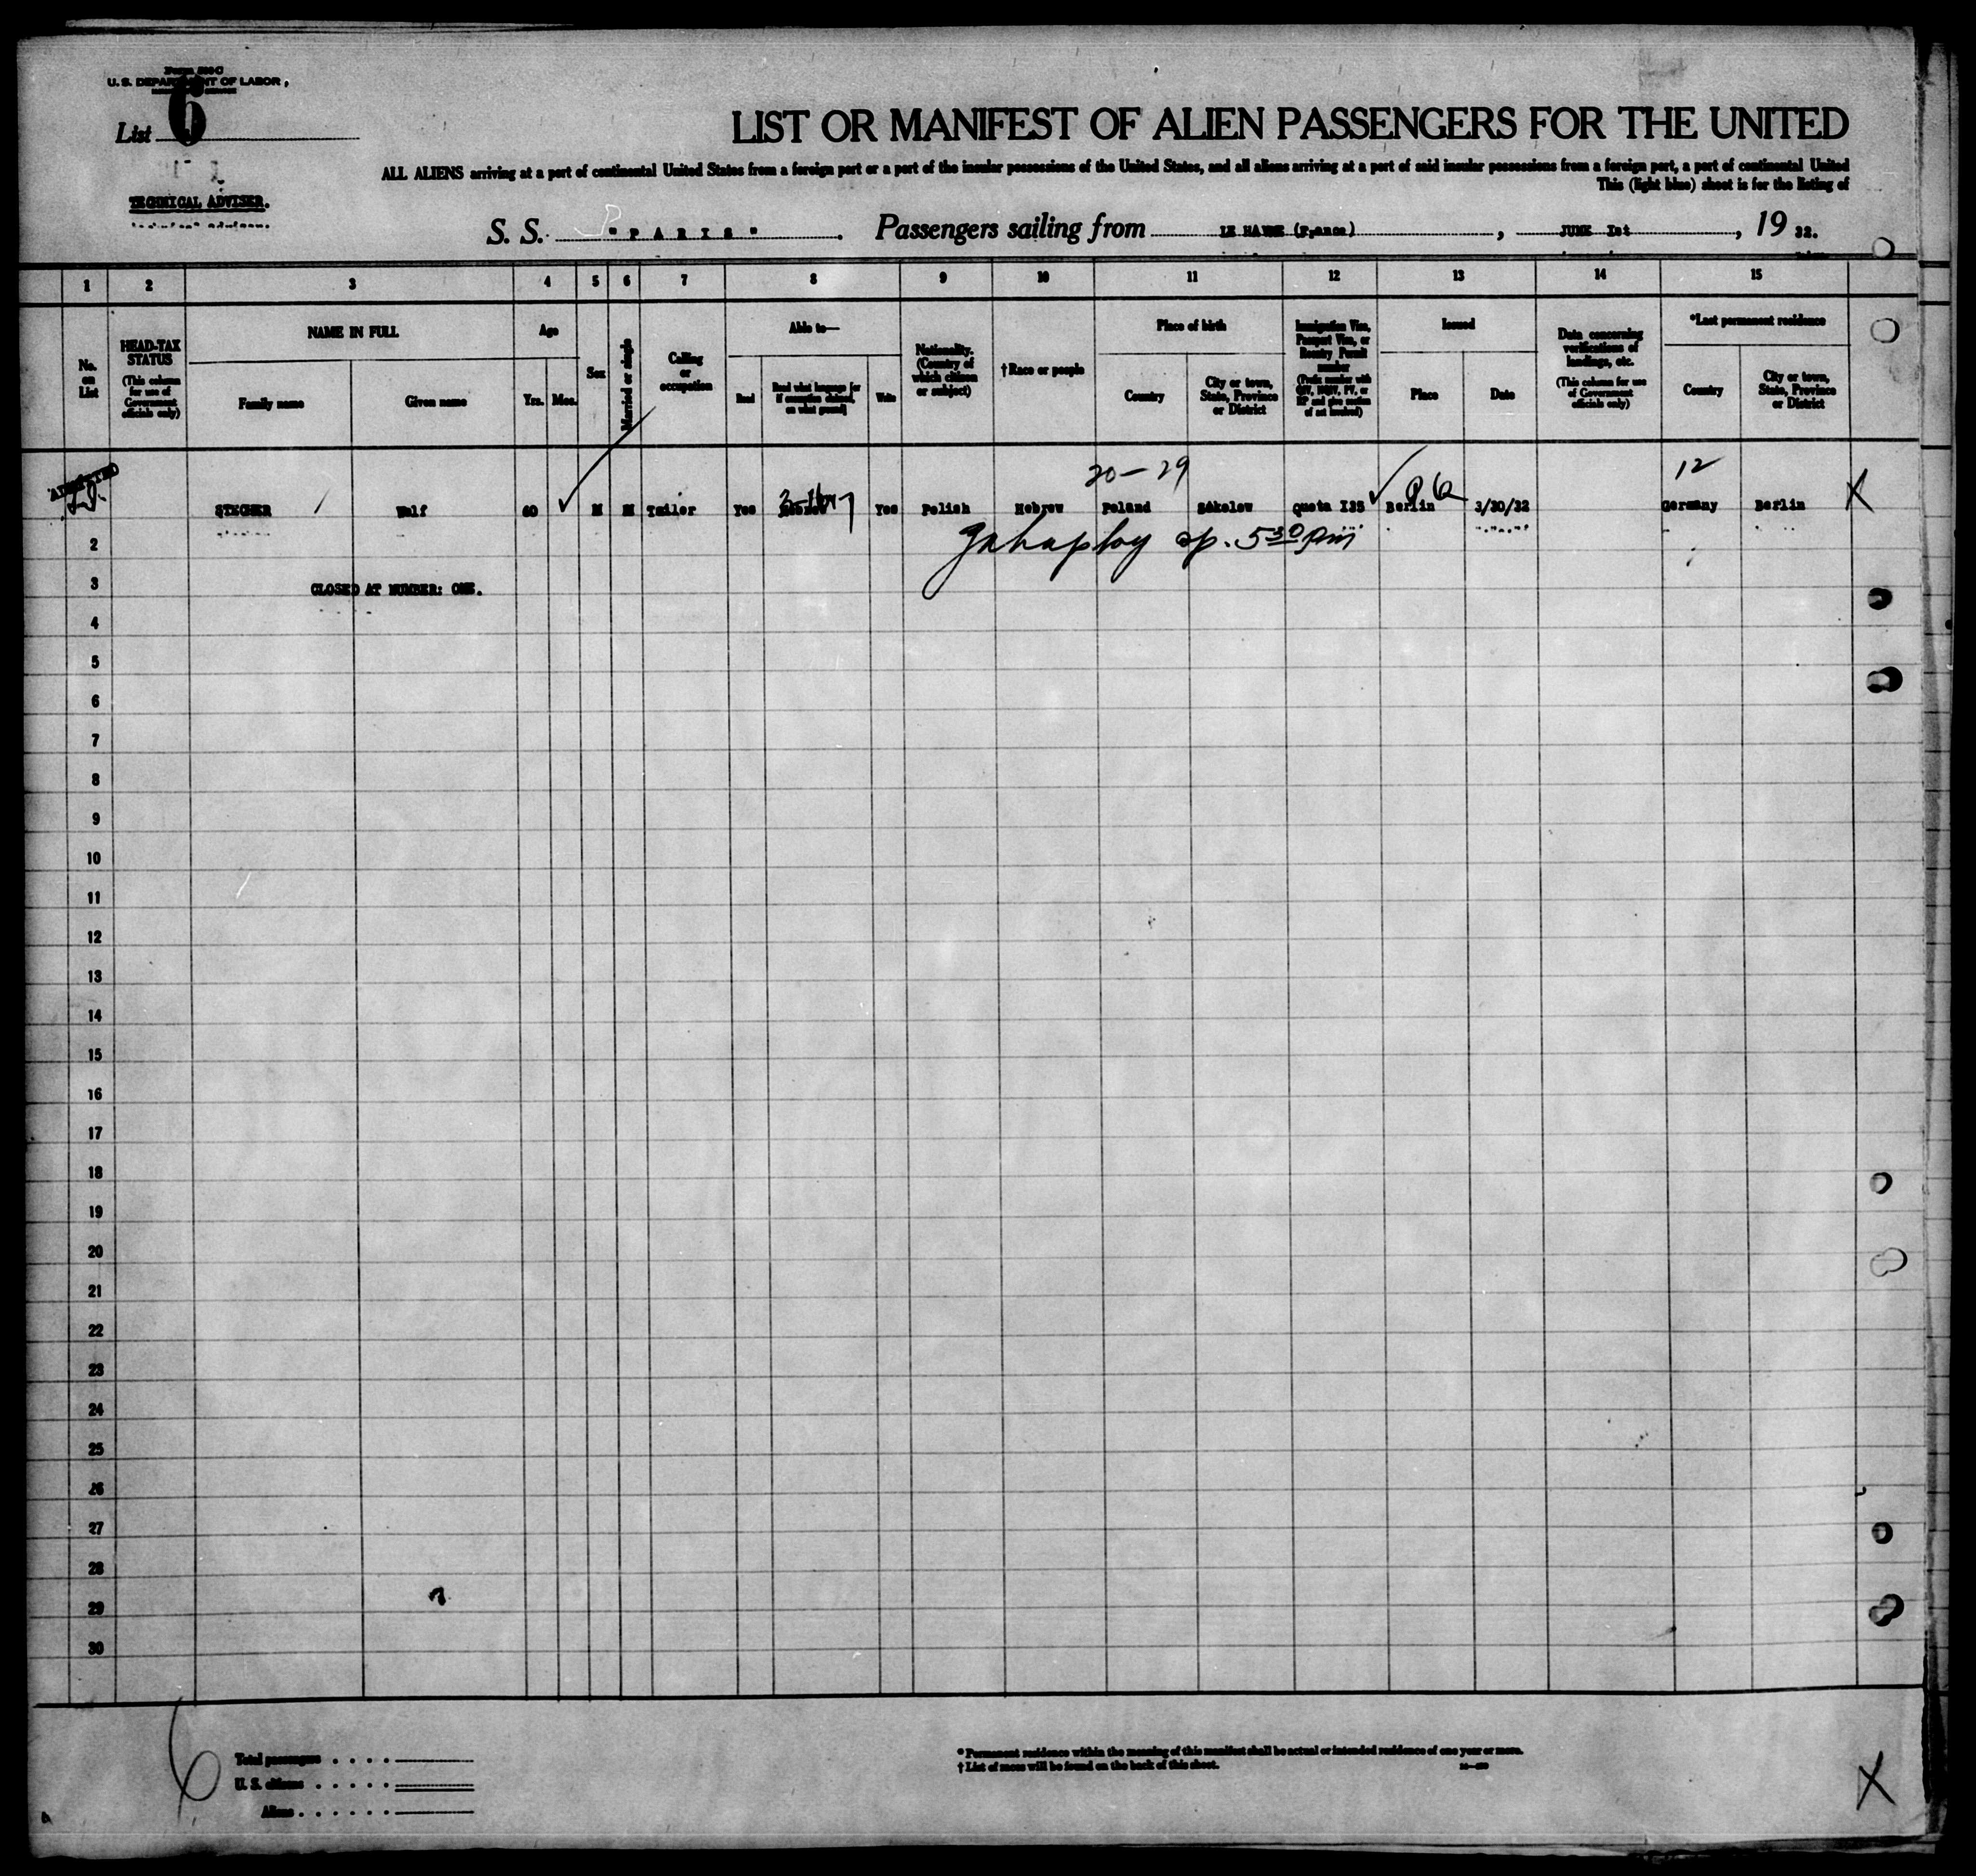 Form 500 C
U. S. DEPARTMENT OF LABOR
List 6
TECHNICAL ADVISER.
LIST OR MANIFEST OF ALIEN PASSENGERS FOR THE UNITED
ALL ALIENS arriving at a port of continental United States from a foreign port or a port of the insular possessions of the United States, and all aliens arriving at a port of said insular possessions from a foreign port, a port of continental United
This (light blue) sheet is for the listing of
S. S. "PARIS" . Passengers sailing from LE HAVRE (France) , JUNE Ist , 19 32.
1 2 3 4 5 6 7 8 9 10 11 12 13 14 15
No. on List
HEAD-TAX STATUS (This column for use of Government officials only)
NAME IN FULL
Family name
Given name
Age
Yrs. Mos.
Sex
Married or single
Calling or occupation
Able to—
Read
Read what language (or if exemption claimed, on what ground)
Write
Nationality. (Country of which citizen or subject)
† Race or people
Place of birth
Country
City or town, State, Province or District
Immigration Visa, Passport Visa, or Reentry Permit number (Prefix number with QIV, NQIV, PV, or RP and give section of act involved)
Issued
Place
Date
Data concerning verifications of landings, etc. (This column for use of Government officials only)
*Last permanent residence
Country
City or town, State, Province or District
ADMITTED
20-29
12
X
STECHER Wolf 60 M M Tailor Yes Yes Polish Hebrew Poland Sokolow Quota I35 Berlin 3/30/32 Germany Berlin
sp. 5 30 pm
2
3 CLOSED AT NUMBER: ONE.
4
5
6
7
8
9
10
11
12
13
14
15
16
17
18
19
20
21
22
23
24
25
26
27
28
29
30
6
Total passengers . . . .
U. S. citizens . . . . .
Aliens . . . . . .
* Permanent residence within the meaning of this manifest shall be actual or intended residence of one year or more.
† List of races will be found on the back of this sheet.
X